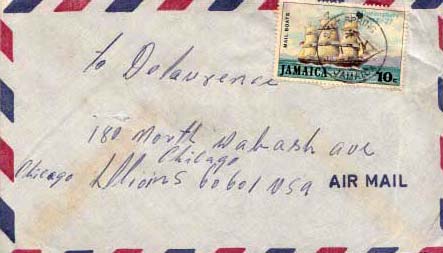 MAIL BOATS
JAMAICA 10c
to DeLaurence
180 North Wabash ave
Chicago
Chicago Illions 60601 USA
AIR MAIL